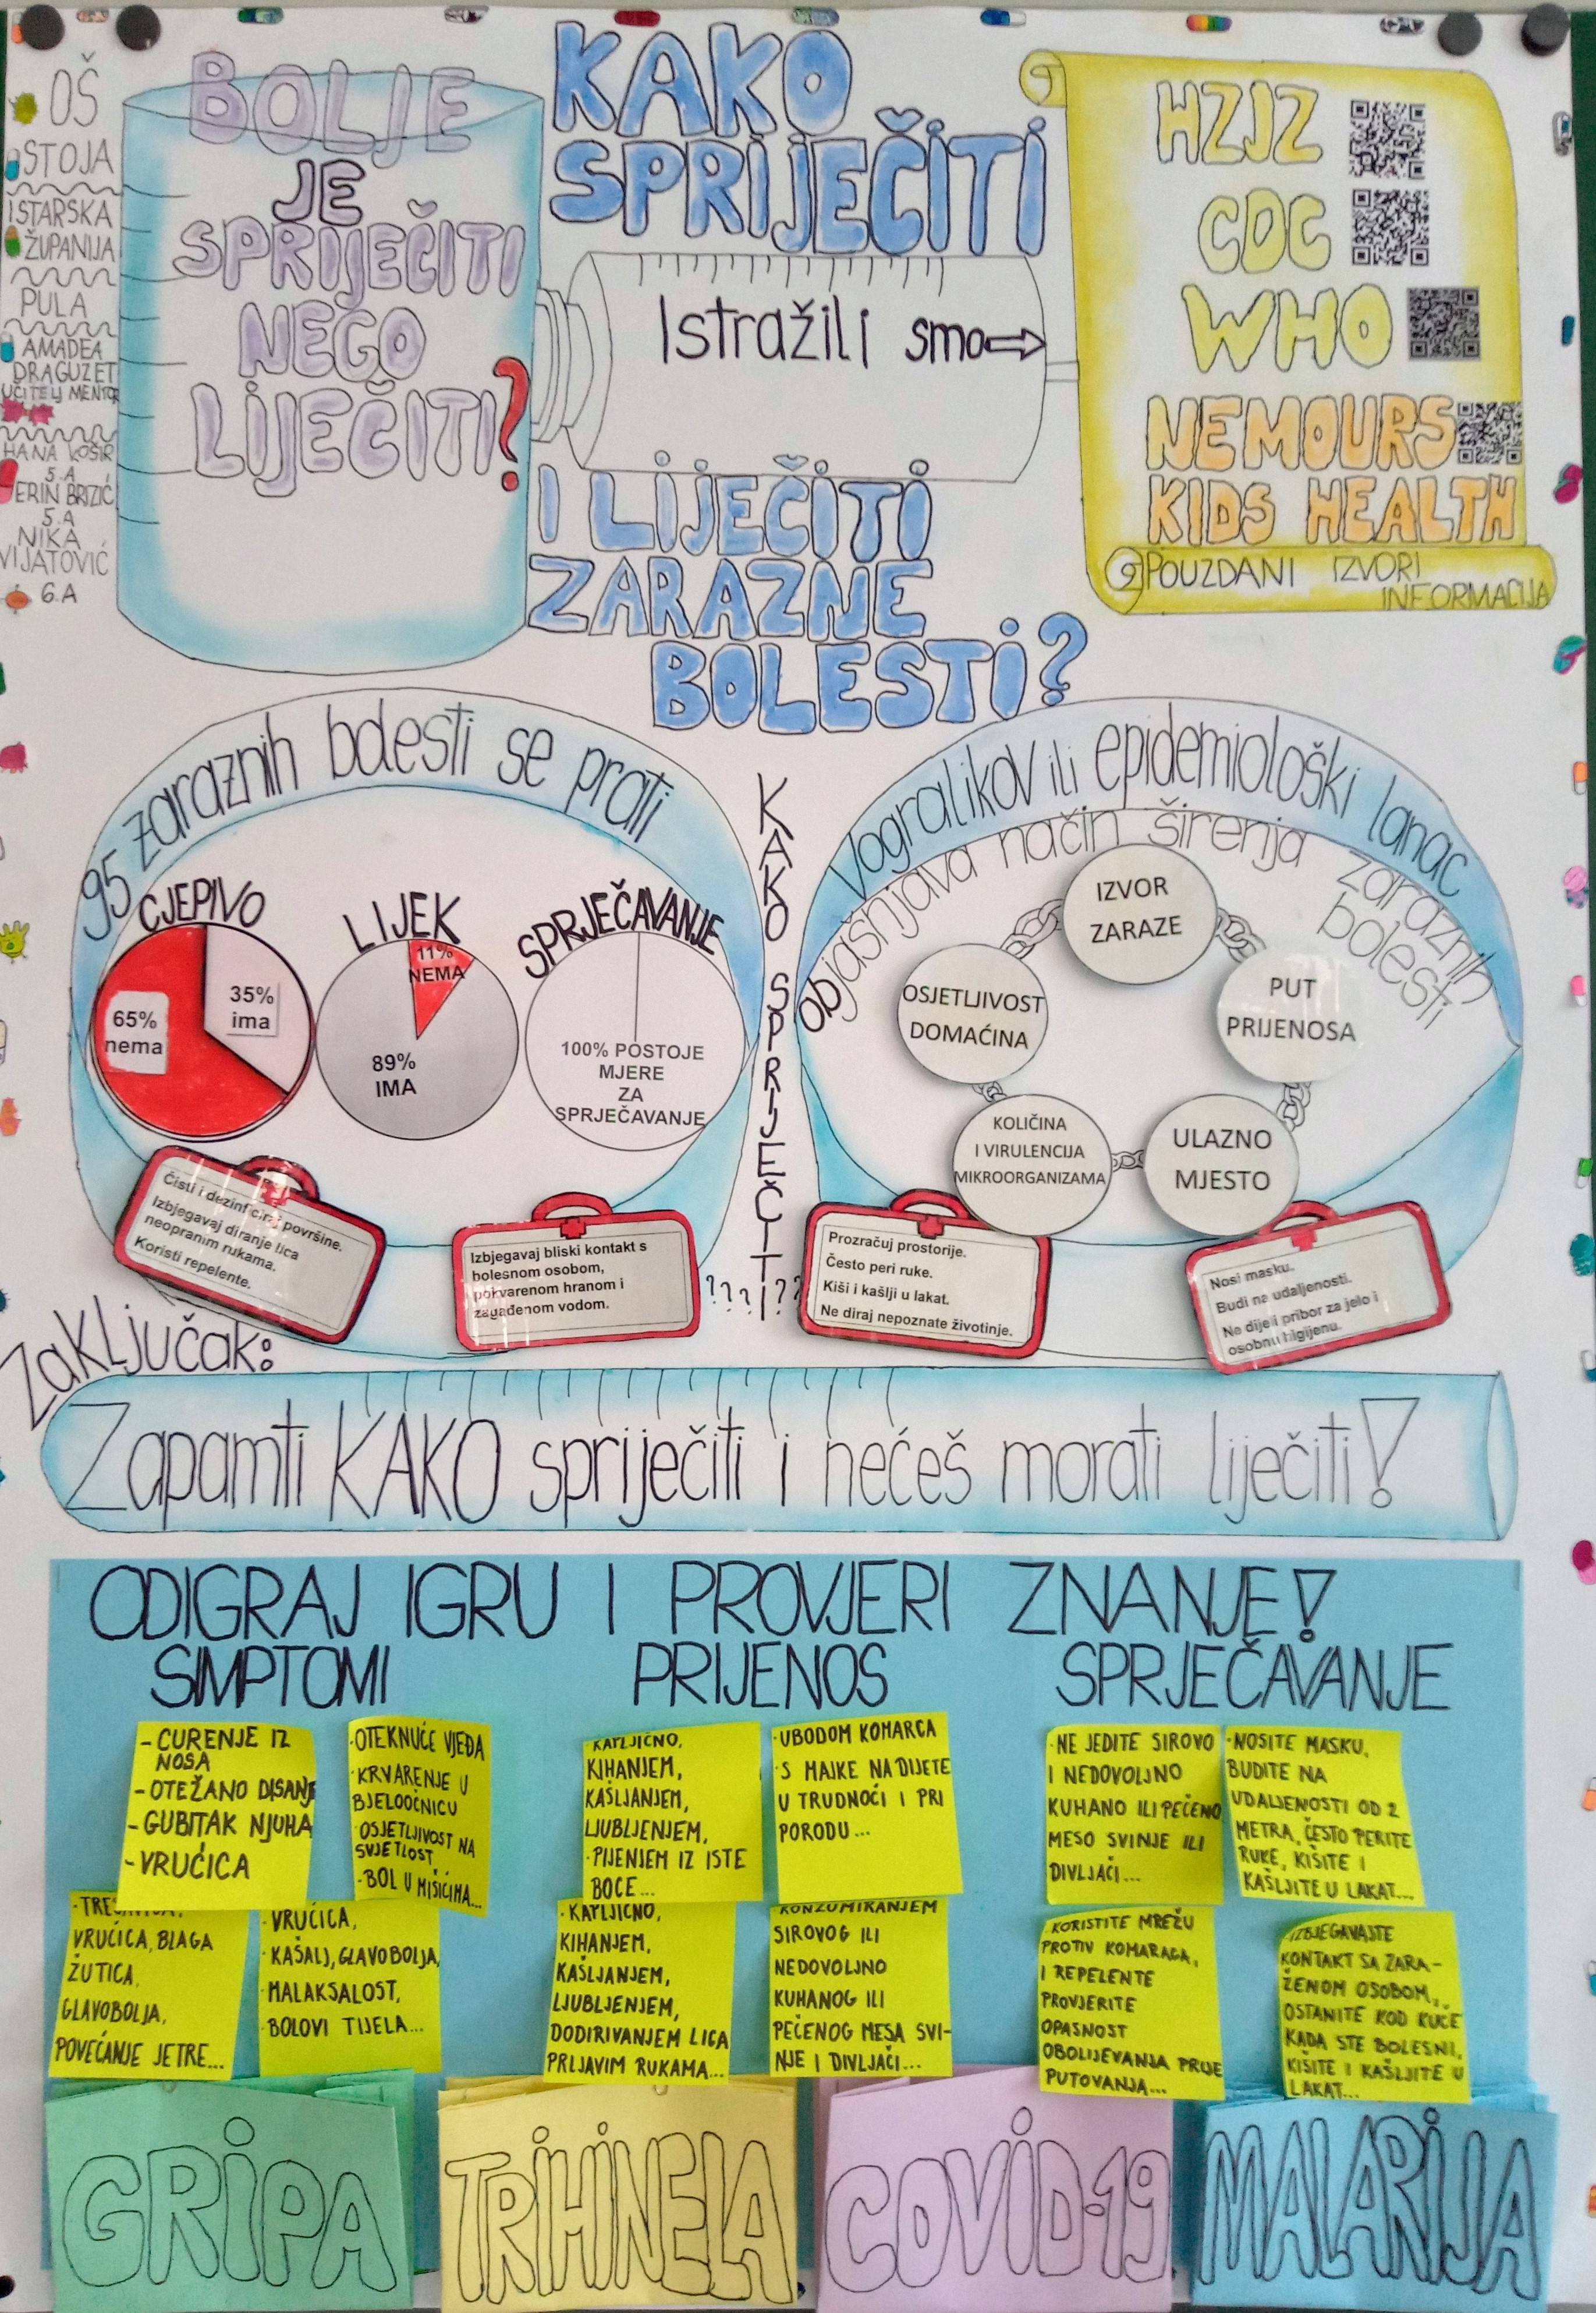 OŠ
STOJA
ISTARSKA
ŽUPANIJA
PULA
AMADEA
DRAGUZET
UČITELJ MENTOR
HANA KOŠIR
5.A
ERIN BRIZIĆ
5.A
NIKA
VIJATOVIĆ
6.A
BOLJE
JE
SPRIJEČITI
NEGO
LIJEČITI?
KAKO
SPRIJEČITI
Istražili smo
I LIJEČITI
ZARAZNE
BOLESTI?
HZJZ
CDC
WHO
NEMOURS
KIDS HEALTH
POUZDANI IZVORI
INFORMACIJA
95 zaraznih bolesti se prati
CJEPIVO
65%
nema
35%
ima
LIJEK
11%
NEMA
89%
IMA
SPRJEČAVANJE
100% POSTOJE
MJERE
ZA
SPRJEČAVANJE
KAKO SPRIJEČITI
????
??
Vogralikov ili epidemiološki lanac
objašnjava način širenja zaraznih
bolesti
IZVOR
ZARAZE
PUT
PRIJENOSA
ULAZNO
MJESTO
KOLIČINA
I VIRULENCIJA
MIKROORGANIZAMA
OSJETLJIVOST
DOMAĆINA
Čisti i dezinficiraj površine.
Izbjegavaj diranje lica
neopranim rukama.
Koristi repelente.
Izbjegavaj bliski kontakt s
bolesnom osobom,
pokvarenom hranom i
zagađenom vodom.
Prozračuj prostorije.
Često peri ruke.
Kiši i kašlji u lakat.
Ne diraj nepoznate životinje.
Nosi masku.
Budi na udaljenosti.
Ne dijeli pribor za jelo i
osobnu higijenu.
Zaključak:
Zapamti KAKO spriječiti i nećeš morati liječiti!
ODIGRAJ IGRU I PROVJERI ZNANJE!
SIMPTOMI
- CURENJE IZ
NOSA
- OTEŽANO DISANJE
- GUBITAK NJUHA
- VRUĆICA
·OTEKNUĆE VJEĐA
·KRVARENJE U
BJELOOČNICU
·OSJETLJIVOST NA
SVJETLOST
·BOL U MIŠIĆIMA...
VRUĆICA, BLAGA
ŽUTICA,
GLAVOBOLJA,
POVEĆANJE JETRE...
·VRUĆICA,
·KAŠALJ, GLAVOBOLJA,
·MALAKSALOST,
·BOLOVI TIJELA...
PRIJENOS
KAPLJIČNO,
KIHANJEM,
KAŠLJANJEM,
LJUBLJENJEM,
·PIJENJEM IZ ISTE
BOCE...
·UBODOM KOMARCA
·S MAJKE NA DIJETE
U TRUDNOĆI I PRI
PORODU...
·KAPLJIČNO,
KIHANJEM,
KAŠLJANJEM,
LJUBLJENJEM,
DODIRIVANJEM LICA
PRLJAVIM RUKAMA...
KONZUMIRANJEM
SIROVOG ILI
NEDOVOLJNO
KUHANOG ILI
PEČENOG MESA SVI-
NJE I DIVLJAČI...
SPRJEČAVANJE
·NE JEDITE SIROVO
I NEDOVOLJNO
KUHANO ILI PEČENO
MESO SVINJE ILI
DIVLJAČI...
·NOSITE MASKU,
BUDITE NA
UDALJENOSTI OD 2
METRA, ČESTO PERITE
RUKE, KIŠITE I
KAŠLJITE U LAKAT...
·KORISTITE MREŽU
PROTIV KOMARACA,
I REPELENTE
PROVJERITE
OPASNOST
OBOLIJEVANJA PRIJE
PUTOVANJA...
·IZBJEGAVAJTE
KONTAKT SA ZARA-
ŽENOM OSOBOM,
OSTANITE KOD KUĆE
KADA STE BOLESNI,
KIŠITE I KAŠLJITE U
LAKAT...
GRIPA
TRIHINELA
COVID-19
MALARIJA